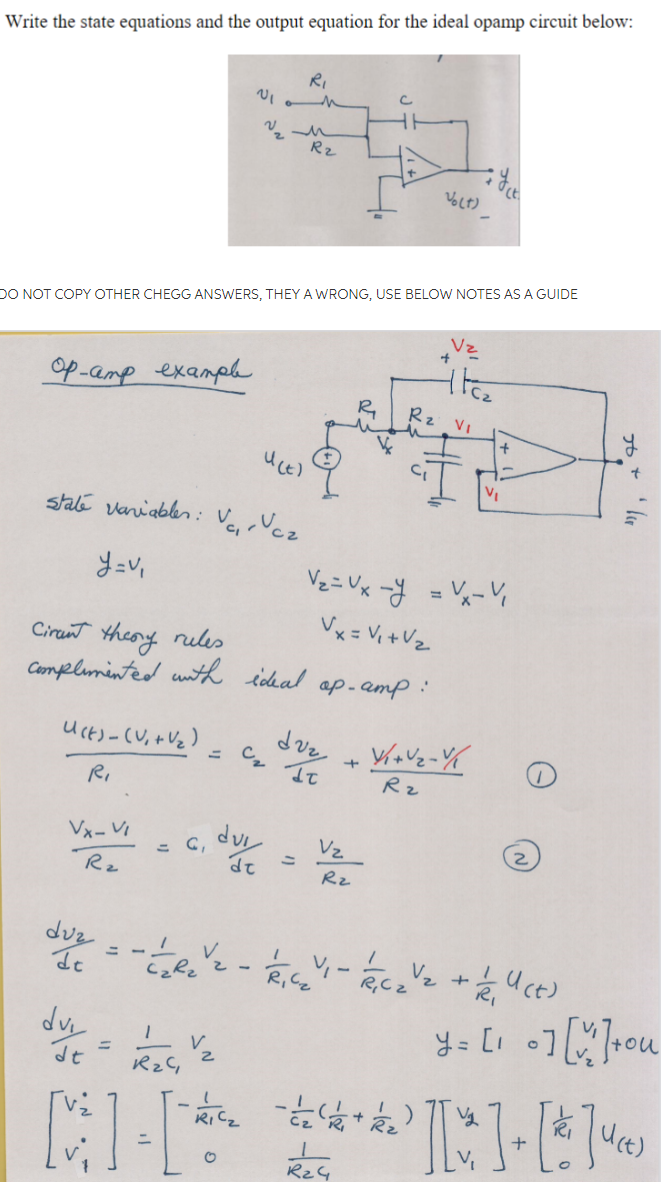 Write the state equations and the output equation for the ideal opamp circuit below:
R1
v1
C
v2
R2
-
+
+ y(t)
vo(t)
-
DO NOT COPY OTHER CHEGG ANSWERS, THEY A WRONG, USE BELOW NOTES AS A GUIDE
V2
+ -
Op-amp example
C2
R1 R2 V1
Vx
+
y
+
u(t)
C1
-
V1
-
state variables: Vc1, Vc2
y = V1
V2 = Vx - y = Vx - V1
Vx = V1 + V2
Circuit theory rules
complimented with ideal op-amp :
(u(t) - (V1 + V2)) / R1 = C2 dv2/dt + (V1 + V2 - V1) / R2 ①
(Vx - V1) / R2 = C1 dv1/dt = V2 / R2 ②
dv2/dt = - 1/(C2R2) V2 - 1/(R1C2) V1 - 1/(R1C2) V2 + 1/R1 u(t)
dv1/dt = 1/(R2C1) V2
y = [1 0] [V1 V2] + 0u
[V̇2 V̇1] = [-1/(R1C2) -1/C2 (1/R1 + 1/R2) 0 1/(R2C1)] [V2 V1] + [1/R1 0] u(t)